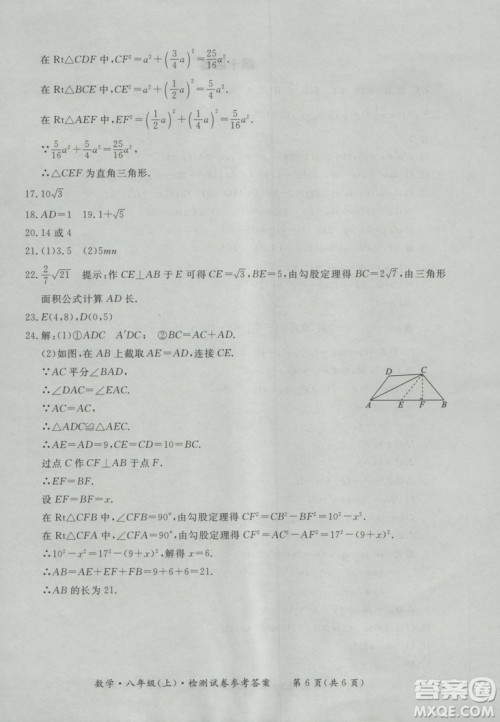 在 Rt△CDF 中,CF²=a²+(3/4 a)²=25/16 a²
在 Rt△BCE 中,CE²=a²+(1/2 a)²=5/4 a²
在 Rt△AEF 中,EF²=(1/2 a)²+(1/4 a)²=5/16 a²
∵5/16 a²+5/4 a²=25/16 a²
∴△CEF 为直角三角形.
17.10√3
18.AD=1 19.1+√5
20.14或4
21.(1)3,5 (2)5mn
22.2/7 √21 提示:作 CE⊥AB 于 E 可得 CE=√3,BE=5,由勾股定理得 BC=2√7,由三角形
面积公式计算 AD 长.
23.E(4,8),D(0,5)
24.解:(1)①ADC A′DC; ②BC=AC+AD
(2)如图,在 AB 上截取 AE=AD,连接 CE.
∵AC 平分∠BAD,
∴∠DAC=∠EAC.
∵AC=AC
∴△ADC≌△AEC.
∴AE=AD=9,CE=CD=10=BC.
过点 C 作 CF⊥AB 于点 F.
∴EF=BF.
设 EF=BF=x.
在 Rt△CFB 中,∠CFB=90°,由勾股定理得 CF²=CB²-BF²=10²-x²
在 Rt△CFA 中,∠CFA=90°,由勾股定理得 CF²=AC²-AF²=17²-(9+x)².
∴10²-x²=17²-(9+x)²,解得 x=6.
∴AB=AE+EF+FB=9+6+6=21.
∴AB 的长为 21.
D C
A E F B
数学·八年级(上)·检测试卷参考答案 第 6 页(共 6 页)